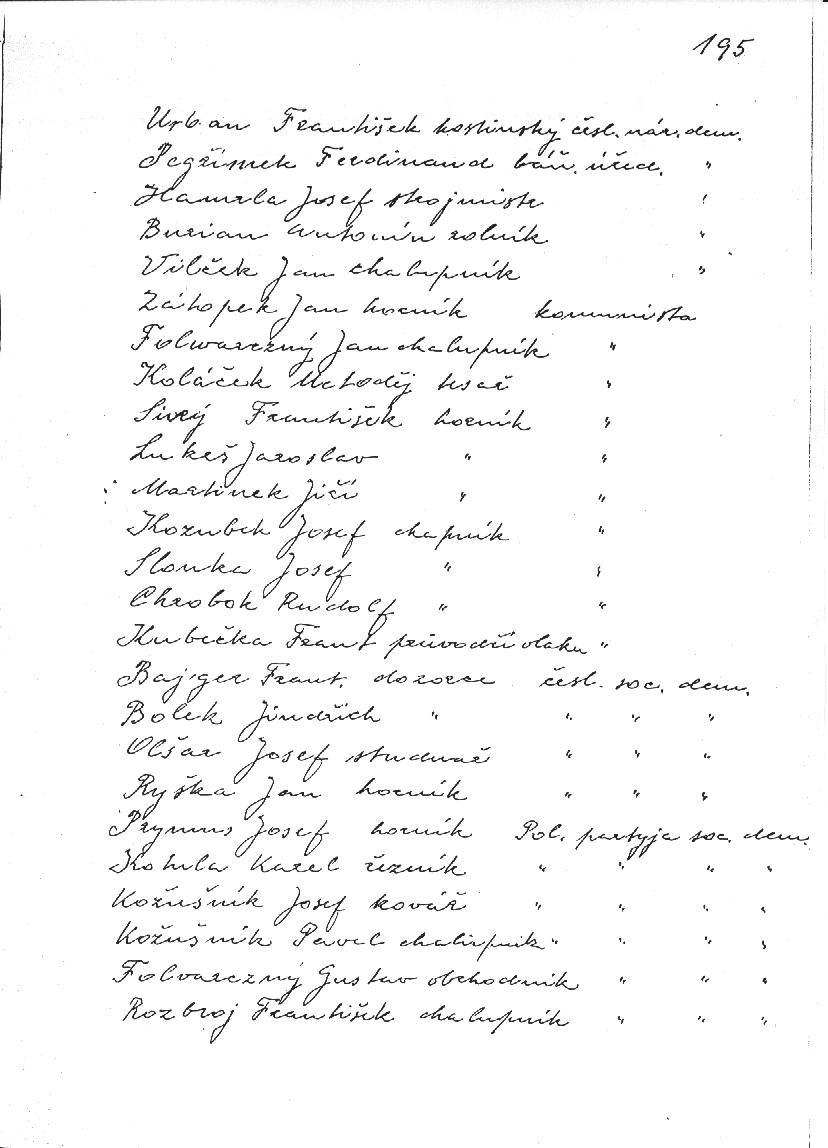 195
Urban František hostinský čsl. nár. dem.
Pegřimek Ferdinand báň. úřed. "
Hamrla Josef strojmistr "
Burian Antonín rolník "
Vilček Jan chalupník "
Záhopek Jan horník komunista
Folwarczný Jan chalupník "
Koláček Metoděj tesař "
Sivý František horník "
Lukeš Jaroslav " "
Martinek Jiří " "
Kozubek Josef chapník "
Slonka Josef " "
Chrobok Rudolf " "
Kubička Frant průvodčí vlaku "
Bajger Frant. dozorce čsl. soc. dem.
Bolek Jindřich " " " "
Olšar Josef studnař " " "
Ryška Jan horník " " "
Prymus Josef horník Pol. partyja soc. dem.
Kohla Karel řezník " " " "
Kožušník Josef kovář " " " "
Kožušník Pavel chalupník " " " "
Folvarczný Gustav obchodník " " "
Rozbroj František chalupník " " "